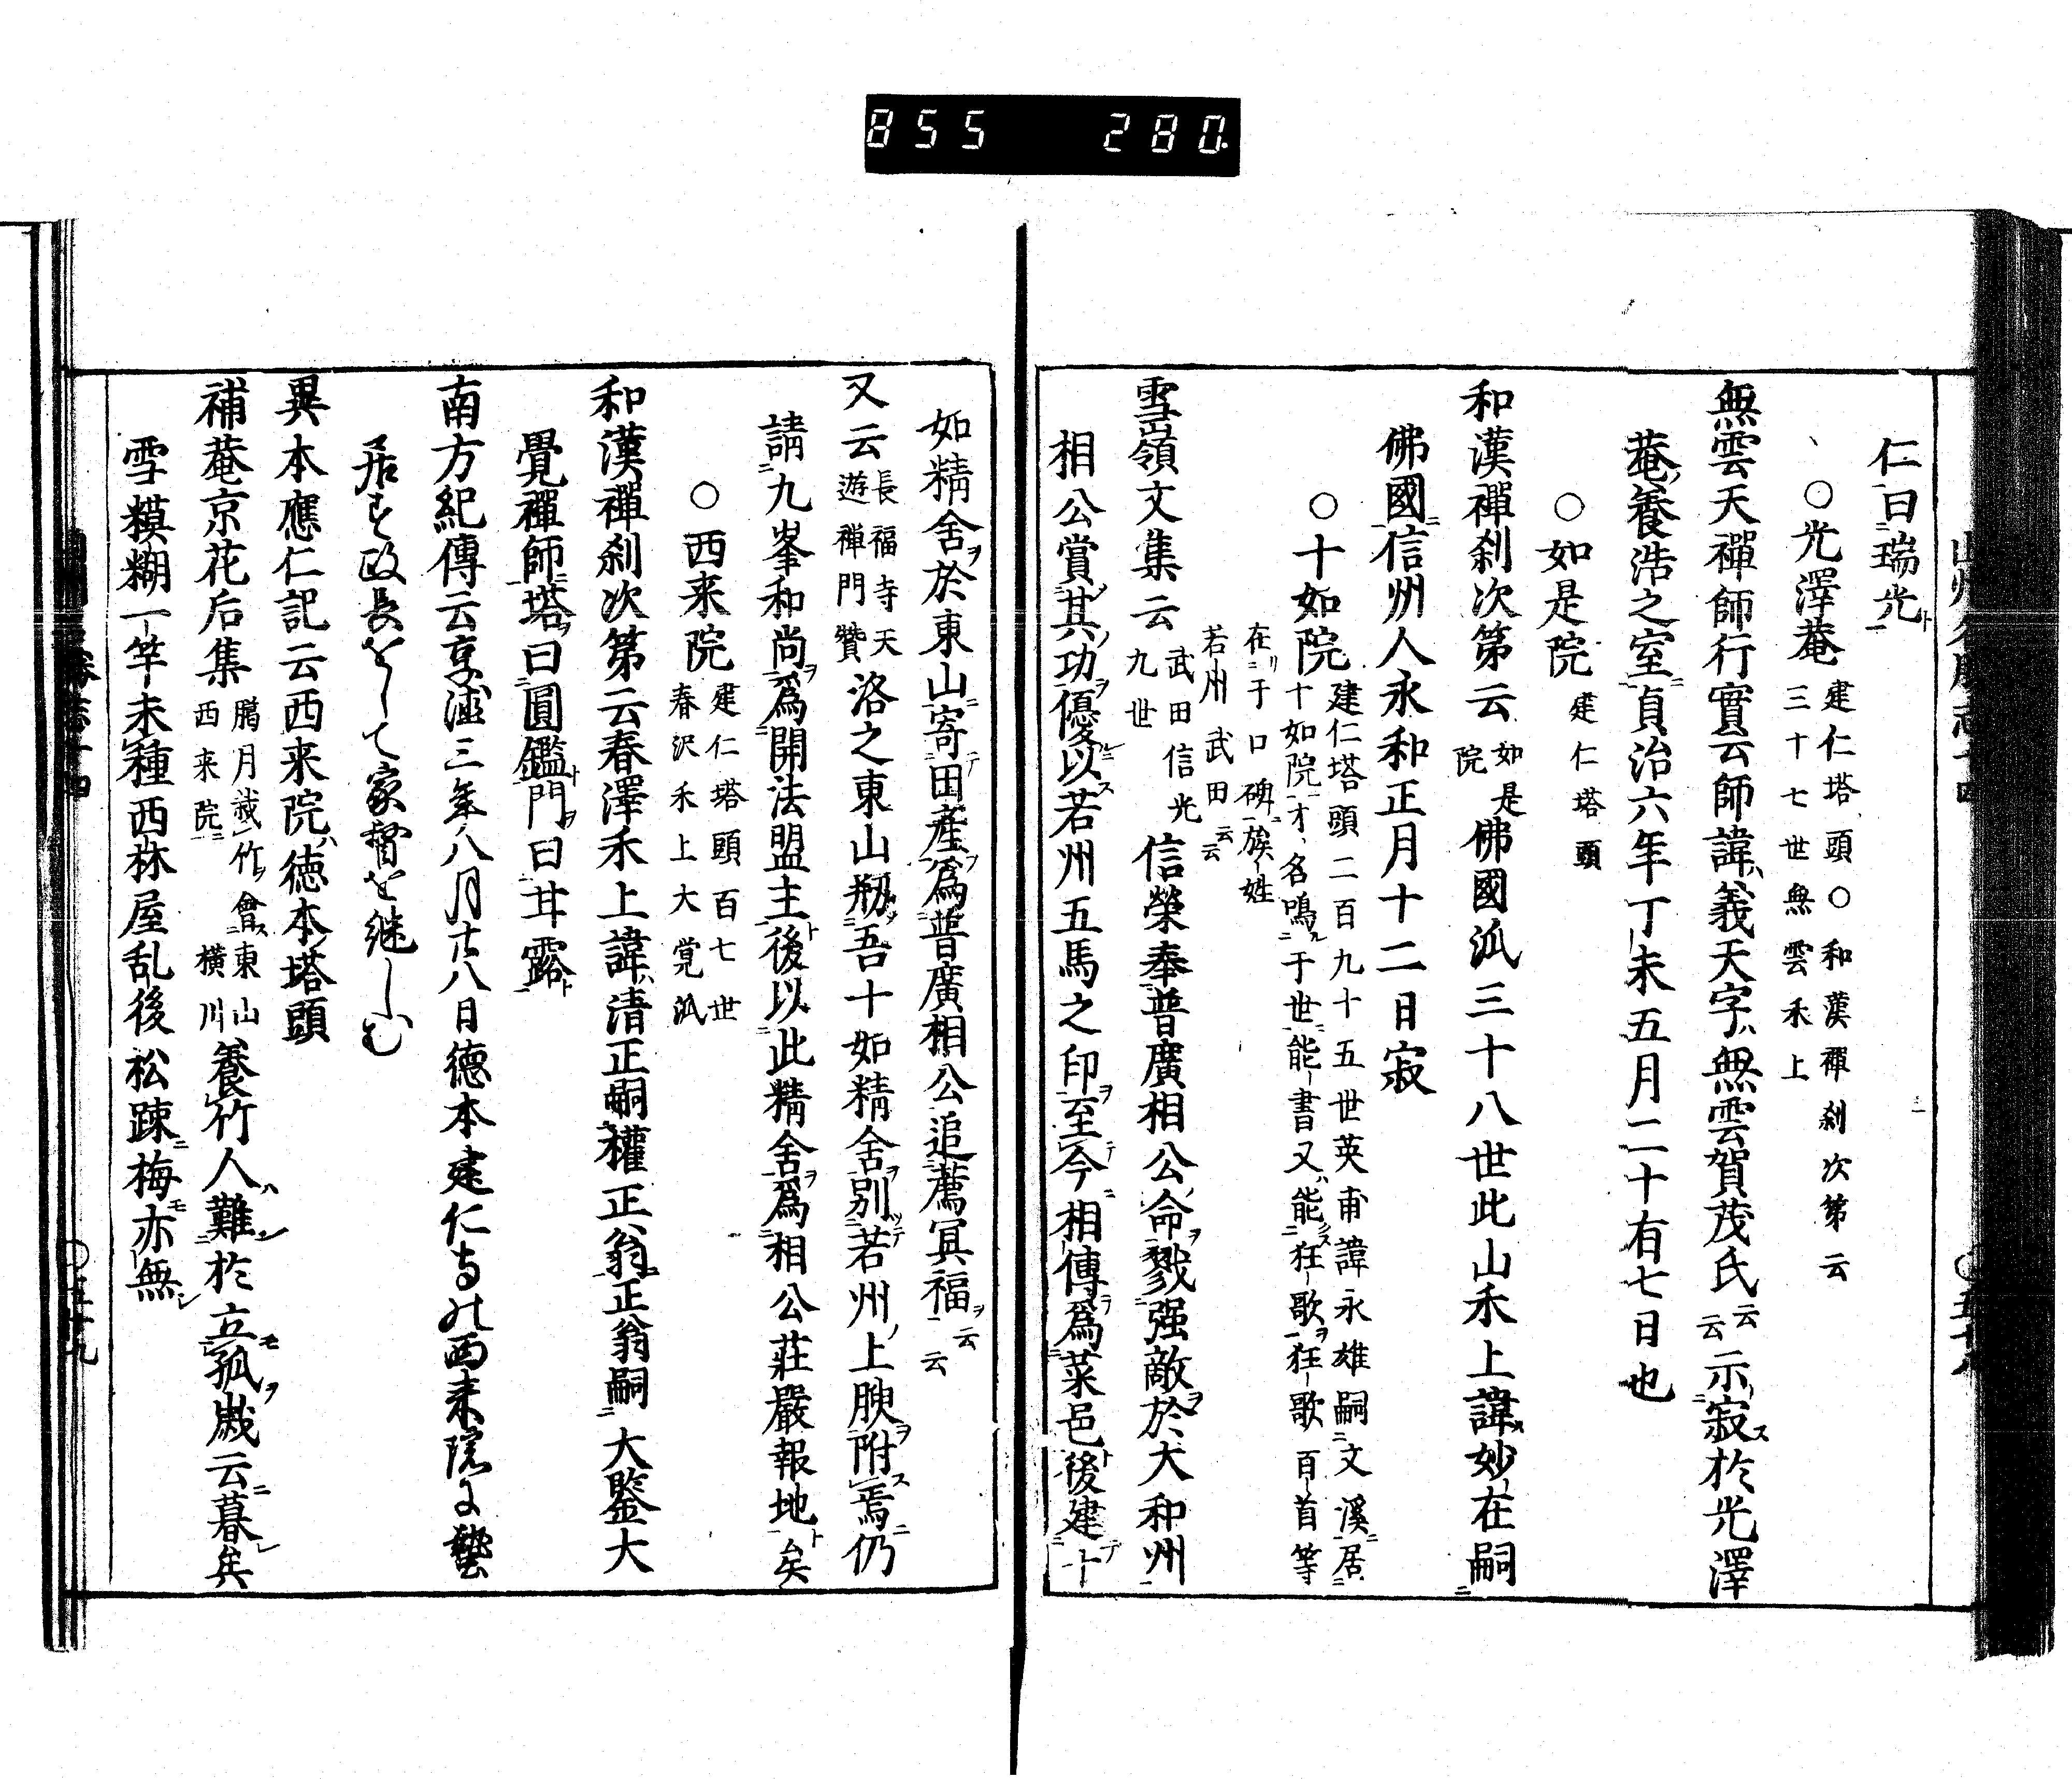 855 280
仁曰瑞光
○光澤菴 建仁塔頭○和漢禪刹次第云
三十七世無雲禾上
無雲天禪師行實云師諱義天字無雲賀茂氏云云示寂於光澤
菴養浩之室貞治六年丁未五月二十有七日也
○如是院 建仁塔頭
和漢禪刹次第云 如是院 佛國派三十八世此山禾上諱妙在嗣
佛國信州人永和正月十二日寂
○十如院 建仁塔頭二百九十五世英甫諱永雄嗣文溪居
十如院才名鳴于世能書又能狂歌狂歌百首等
在于口碑族姓
若州武田云云
雪嶺文集云 武田信光九世 信榮奉普廣相公命戮强敵於大和州
相公賞其功優以若州五馬之印至今相傳爲菜邑後建十
如精舍於東山寄田產爲普廣相公追薦冥福云云
又云 長福寺天遊禪門贊 洛之東山剏吾十如精舍別若州上腴附焉仍
請九峯和尚爲開法盟主後以此精舍爲相公莊嚴報地矣
○西来院 建仁塔頭百七世
春沢禾上大覚派
和漢禪刹次第云春澤禾上諱清正嗣權正翁正翁嗣大鑒大
覺禪師塔曰圓鑑門曰甘露
南方紀傳云享徳三年八月廿八日徳本建仁寺の西来院に蟄
居す政長をして家督を継しむ
異本應仁記云西来院徳本塔頭
補菴京花后集 臈月栽竹會東山西来院 横川 養竹人難於立孤歲云暮矣
雪模糊一竿未種西林屋乱後松踈梅亦無